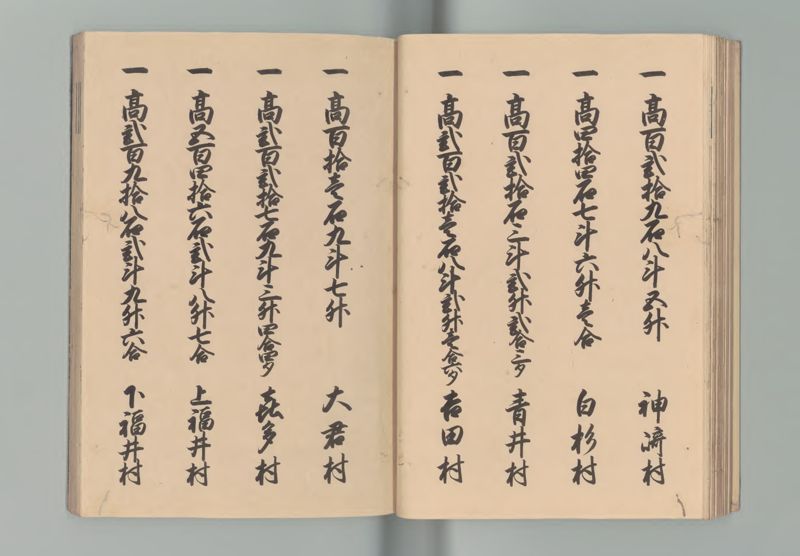 一 高百弐拾九石八斗五升 神﨑村
一 高四拾四石七斗六升壱合 白杉村
一 高百弐拾石三斗弐升弐合三夕 青井村
一 高弐百弐拾壱石八斗弐升壱合六夕 吉田村
一 高百拾壱石九斗七升 大君村
一 高弐百弐拾七石九斗三升四合四夕 喜多村
一 高五百四拾六石弐斗八升七合 上福井村
一 高弐百九拾八石弐斗九升六合 下福井村